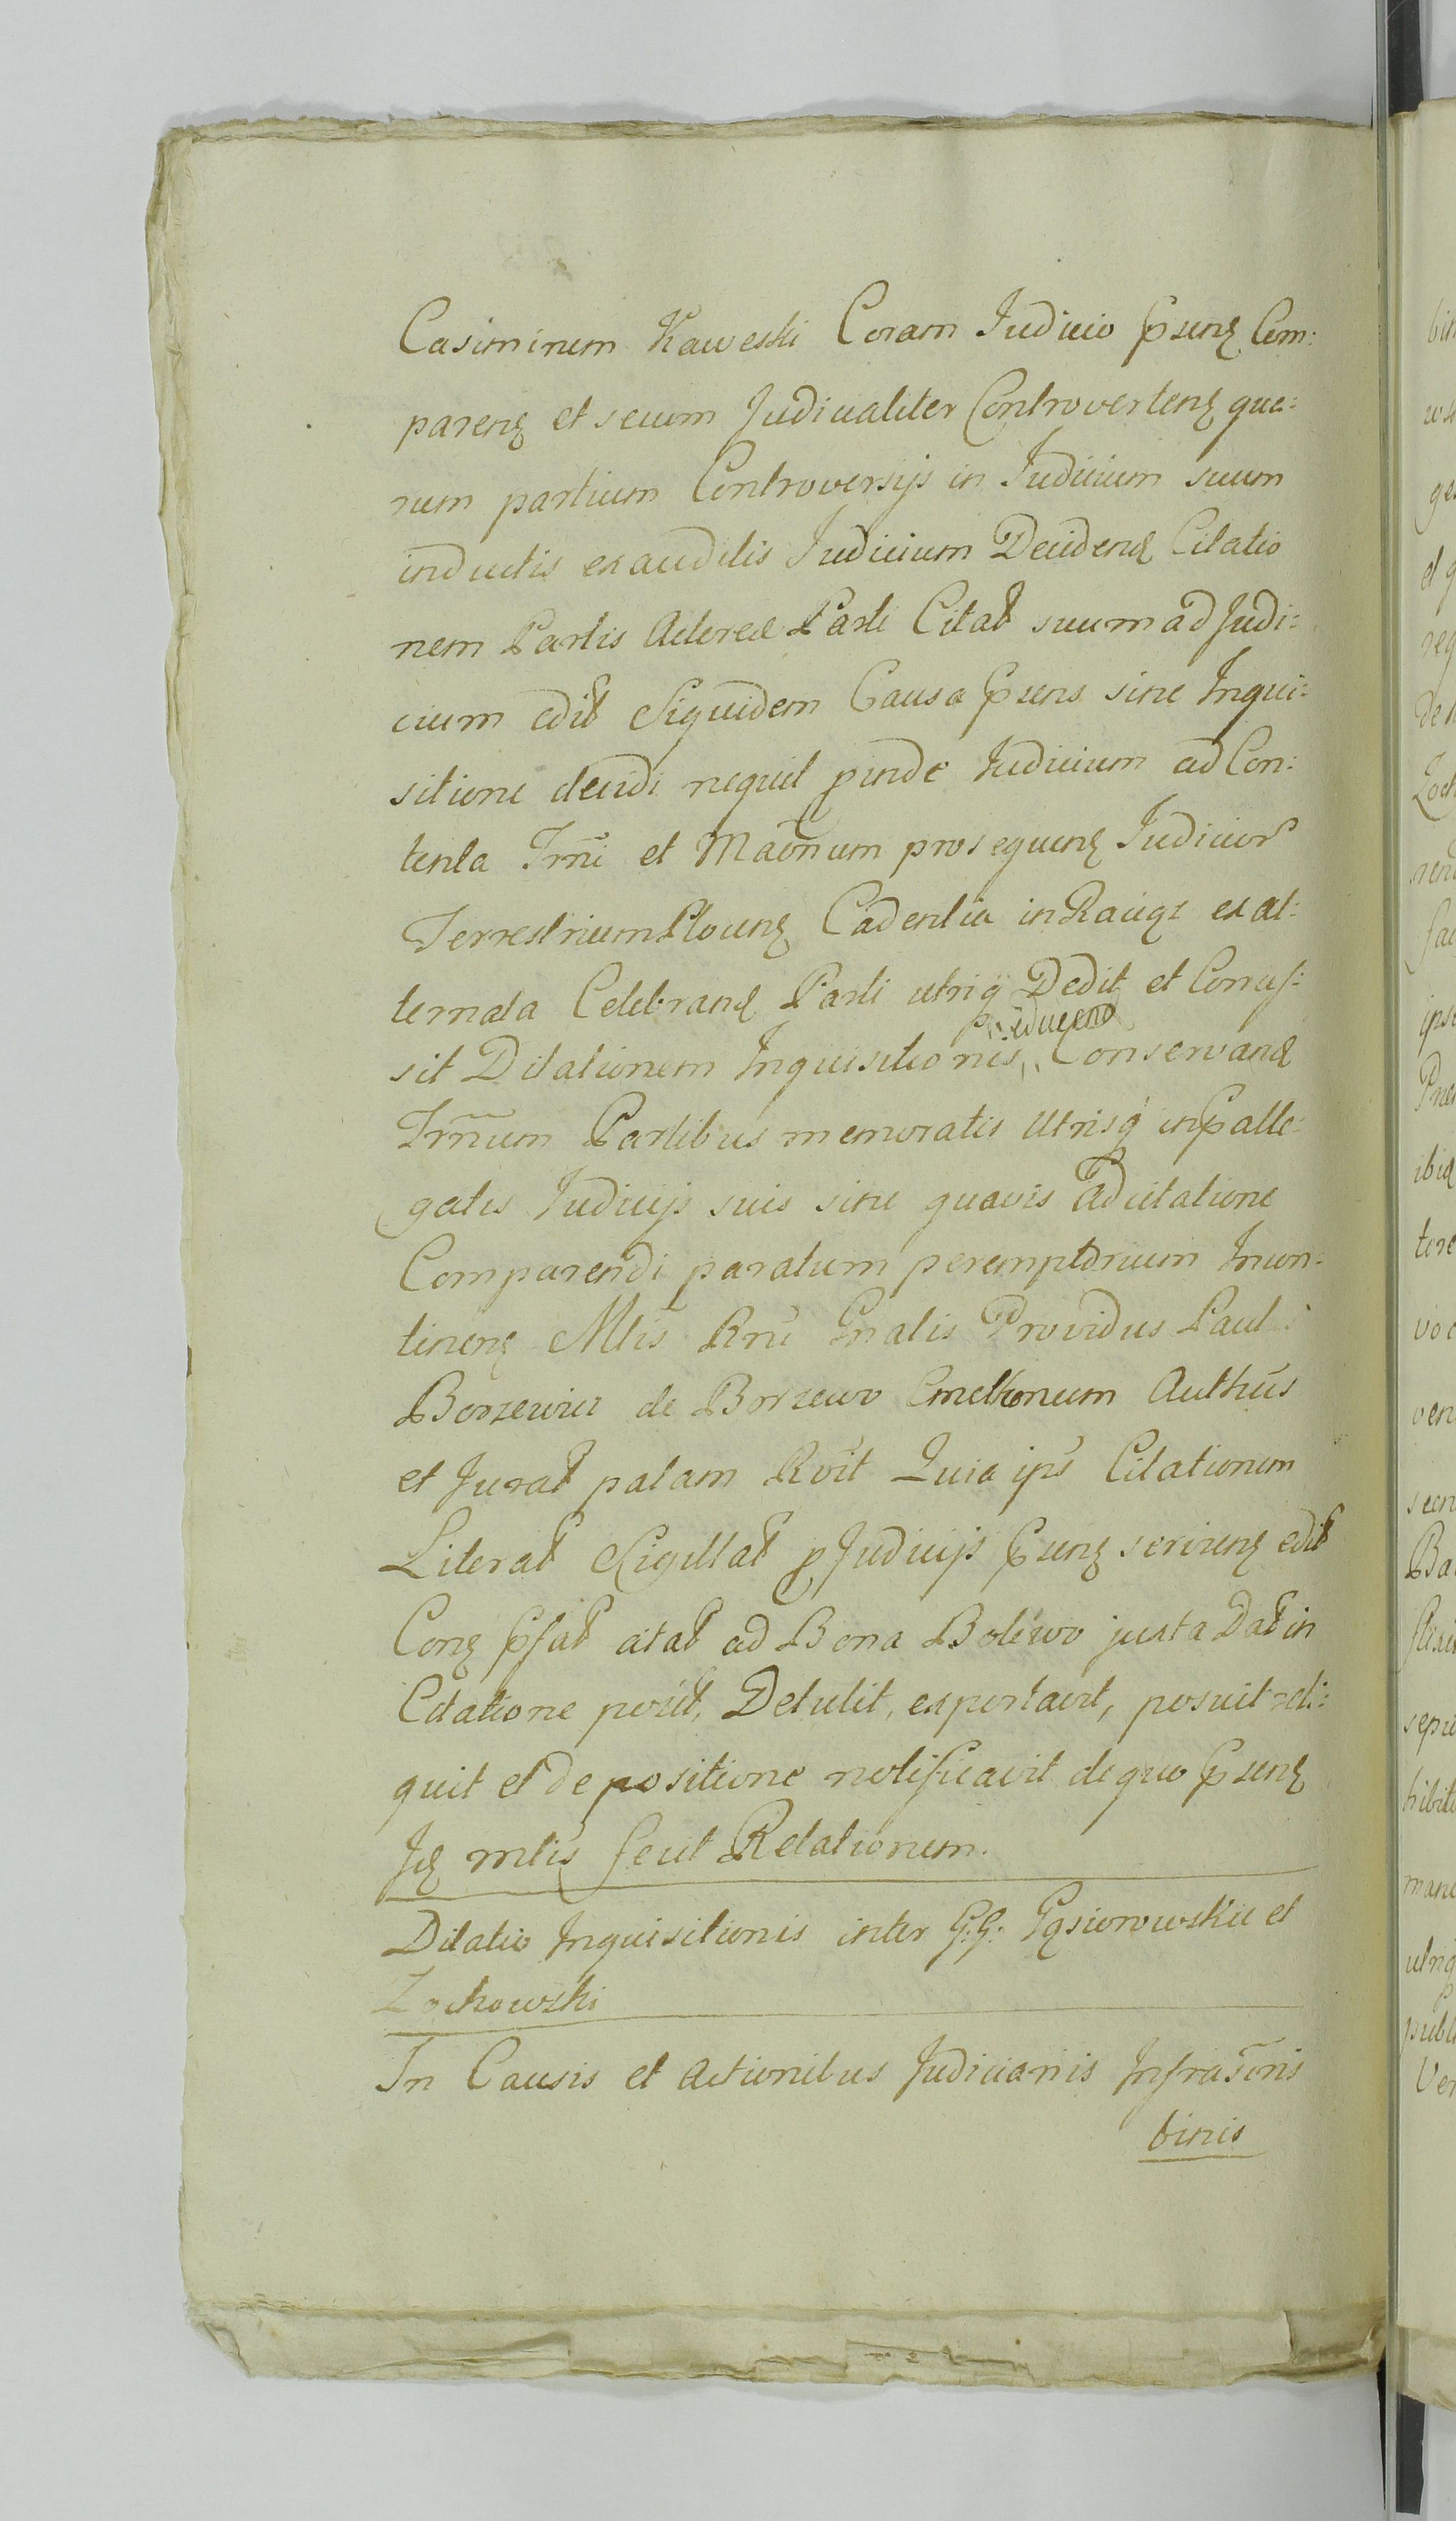 Casimirum Kaweski Coram Iudicio Psenꝫ Com:
parenꝫ et secum Judicialiter Controvertenꝫ qua:
rum partium Controversijs in Iudicium suum
inductis exauditis Iudicium Decidend Citatio
nem Partis Actoreæ Parti Citat suum ad Judi:
cium edit Siquidem Causa Psens sine Inqui:
sitione decidi nequit pinde Iudicium ad Con:
tenta Trmi et prosequenꝫ Iudicior
Terrestrium Plocenꝫ Cadentia in Raciąż ex al:
ternata Celebrand Parti utriq Dedit et Conces:
sit Dilationem Inquisitionis Conservand
educend
Trmum Partibus memoratis Utrisq in Palle:
gatis Iudicijs suis sine quavis Adcitatione
Comparendi paratum peremptorium Incon:
tinenꝫ Mlis Rni Gnalis Providus Paul
Borzewicz de Borzewo Cmethonum Authus
et Jurat palam Rvit Quia ips Citationem
Literat Sigillat p Judicijs Psenꝫ servienꝫ edit
Conꝫ Psat citat ad Bona Bolewo juxta Dat in
Citatione posit, Detulit, exportavit, posuit reli:
quit et de positione notificavit de quo Psenꝫ
Jd mlis fecit Relationem.
Dilatio Inquisitionis inter G:G: Gąsiorowskie et
Zochowski
In Causis et Actionibus Judiciariis Infrascris
binis